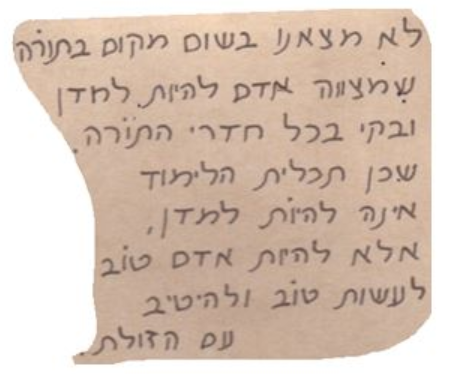 לא מצאנו בשום מקום בתורה
שמצווה אדם להיות למדן
ובקי בכל חדרי התורה.
שכן תכלית הלימוד
אינה להיות למדן,
אלא להיות אדם טוב
לעשות טוב ולהיטיב
עם הזולת.